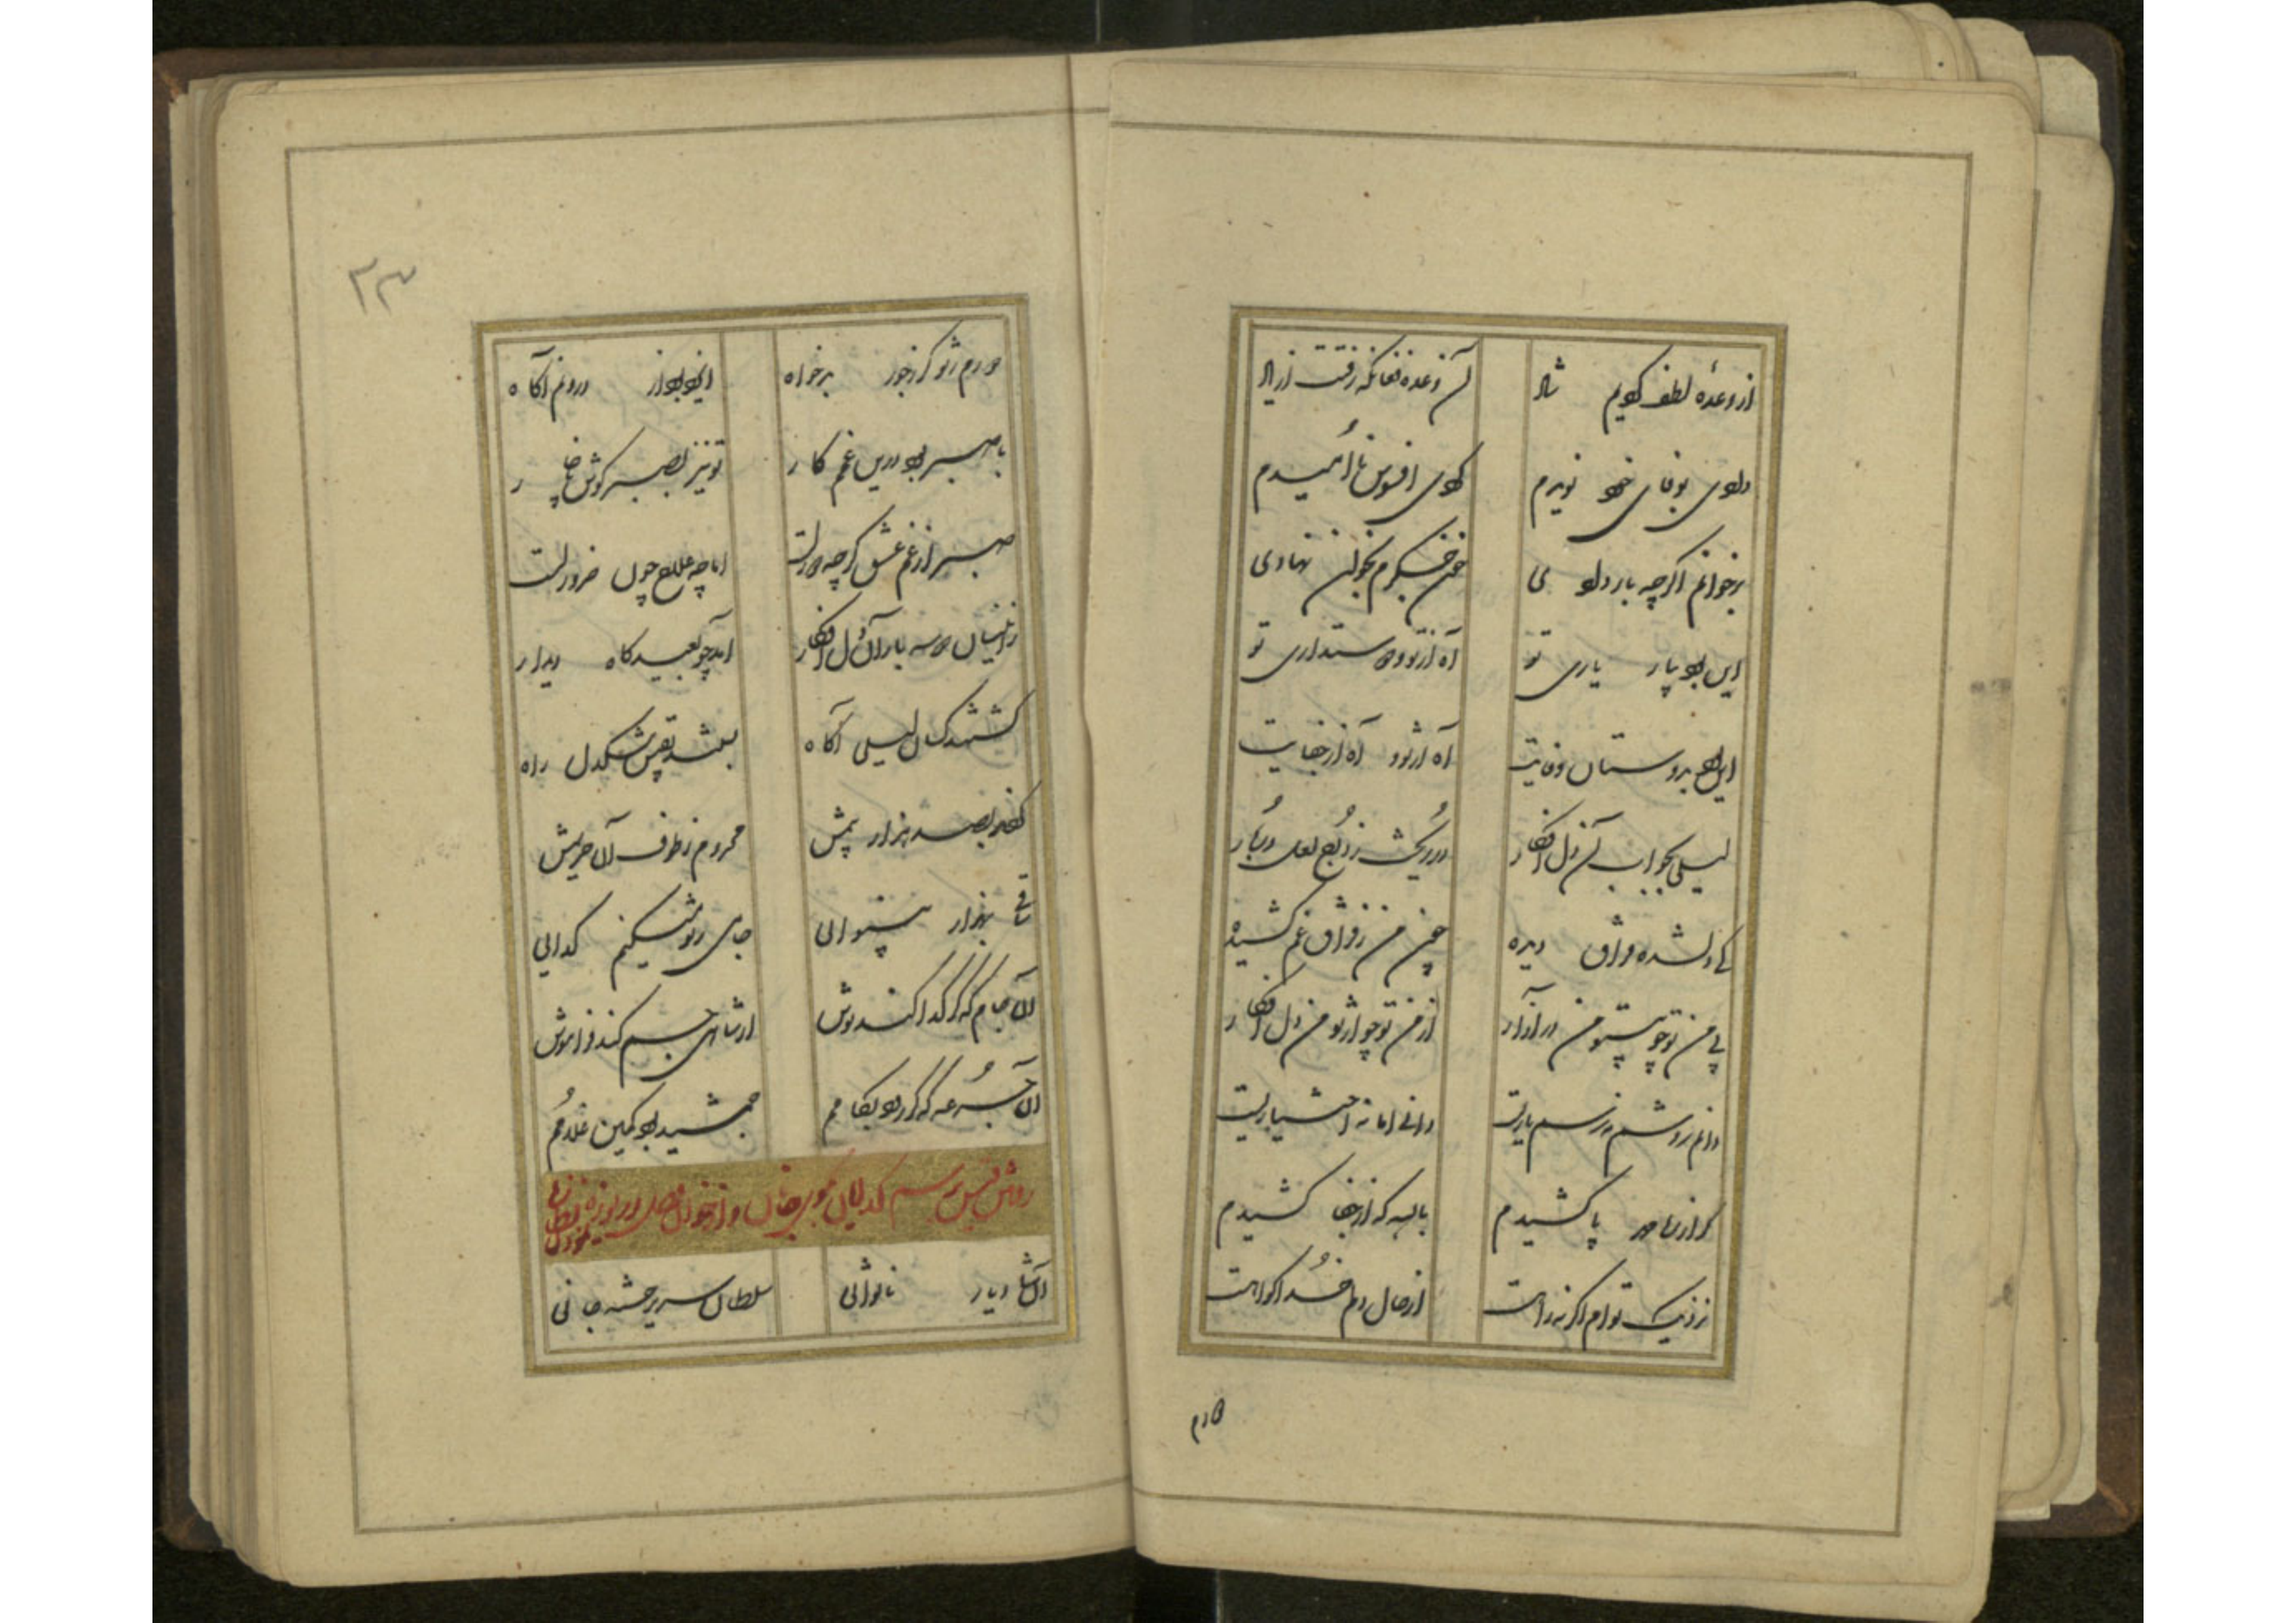 از وعدهٔ لطف کردیم شاد
آن وعده فغان که رفت از یاد
دادی بوفای خود نویدم
کردی افسوس ناامیدم
برخوانم اگرچه بار دادی
خون جگرم بخوان نهادی
این بود بیار یاری تو
آه از تو و دوستداری تو
این بود بدوستان وفایت
آه از تو و آه از جفایت
لیلی بجواب آن دل افکار
در ریخت ز درج لعل دربار
کای دلشده فراق دیده
چون من ز فراق غم کشیده
بی من تو چو بیتو من در آزار
از من تو چو از تو من دل افکار
دانم روش و رسم یاریت
دانی اما نه اختیاریت
گر از ره مهر پا کشیدم
بالله که از جفا کشیدم
نزدیک توام اگر نه راهست
از حال دلم خدا گواهست
دارم
۲۳
دارم ز تو گر نه جور بدخواه
اینجا بود از درونم آگاه
با صبر بود درین غم کار
تو نیز بصبر کوش ناچار
صبر از غم عشق گرچه دورست
اما چه علاج چون ضرورست
زینسان دو سه بار آن دل افکار
آمد چو بعیدگاه دیدار
گشتند کسان لیلی آگاه
بستند بقیس تنگدل راه
کردند بصد هزار بیمش
محروم ز طوف آن حریمش
ساقی بهزار بینوائی
جامی ز تو میکنم گدائی
آن جام که گر گدا کند نوش
از شاهی جم کند فراموش
آن جرعه که گر رود بکامم
جمشید بود کمین غلامم
رفتن قیس برسم گدایان بکوی جانان و از خوان وصل دریوزه نظاره نمودن
آن شاه دیار ناتوانی
سلطان سریر خسته جانی